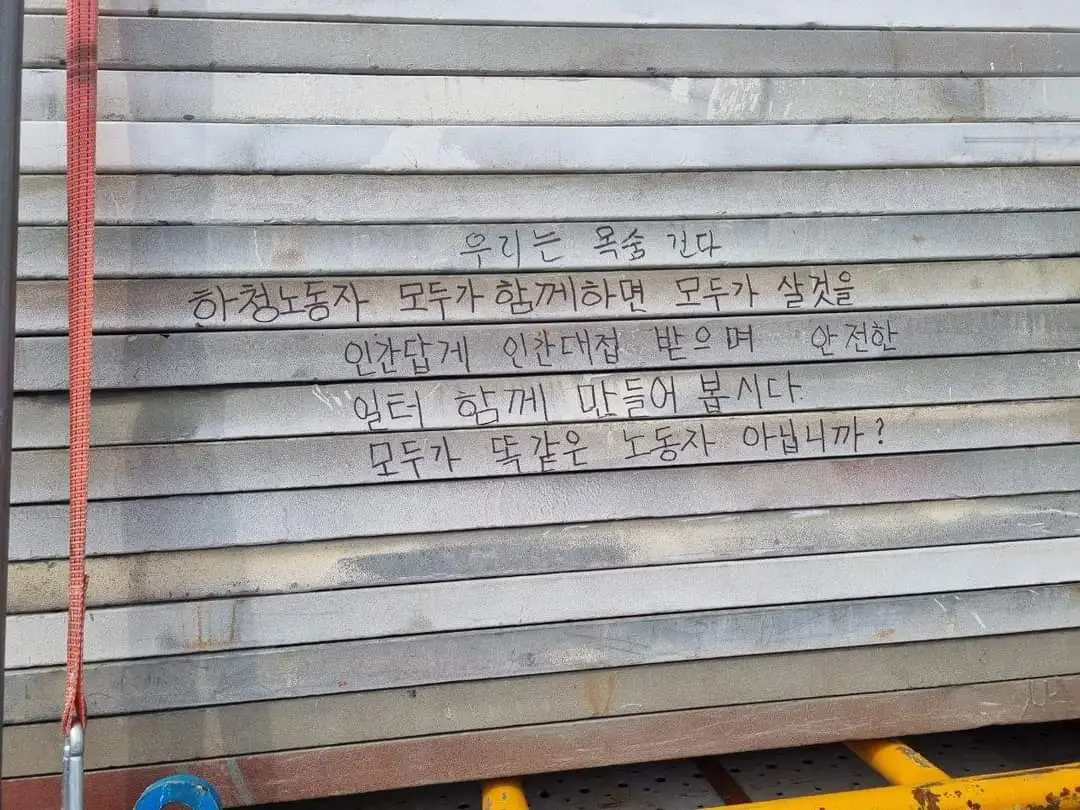 우리는 목숨 건다
하청노동자 모두가 함께하면 모두가 살것을
인간답게 인간대접 받으며 안전한
일터 함께 만들어 봅시다.
모두가 똑같은 노동자 아닙니까?